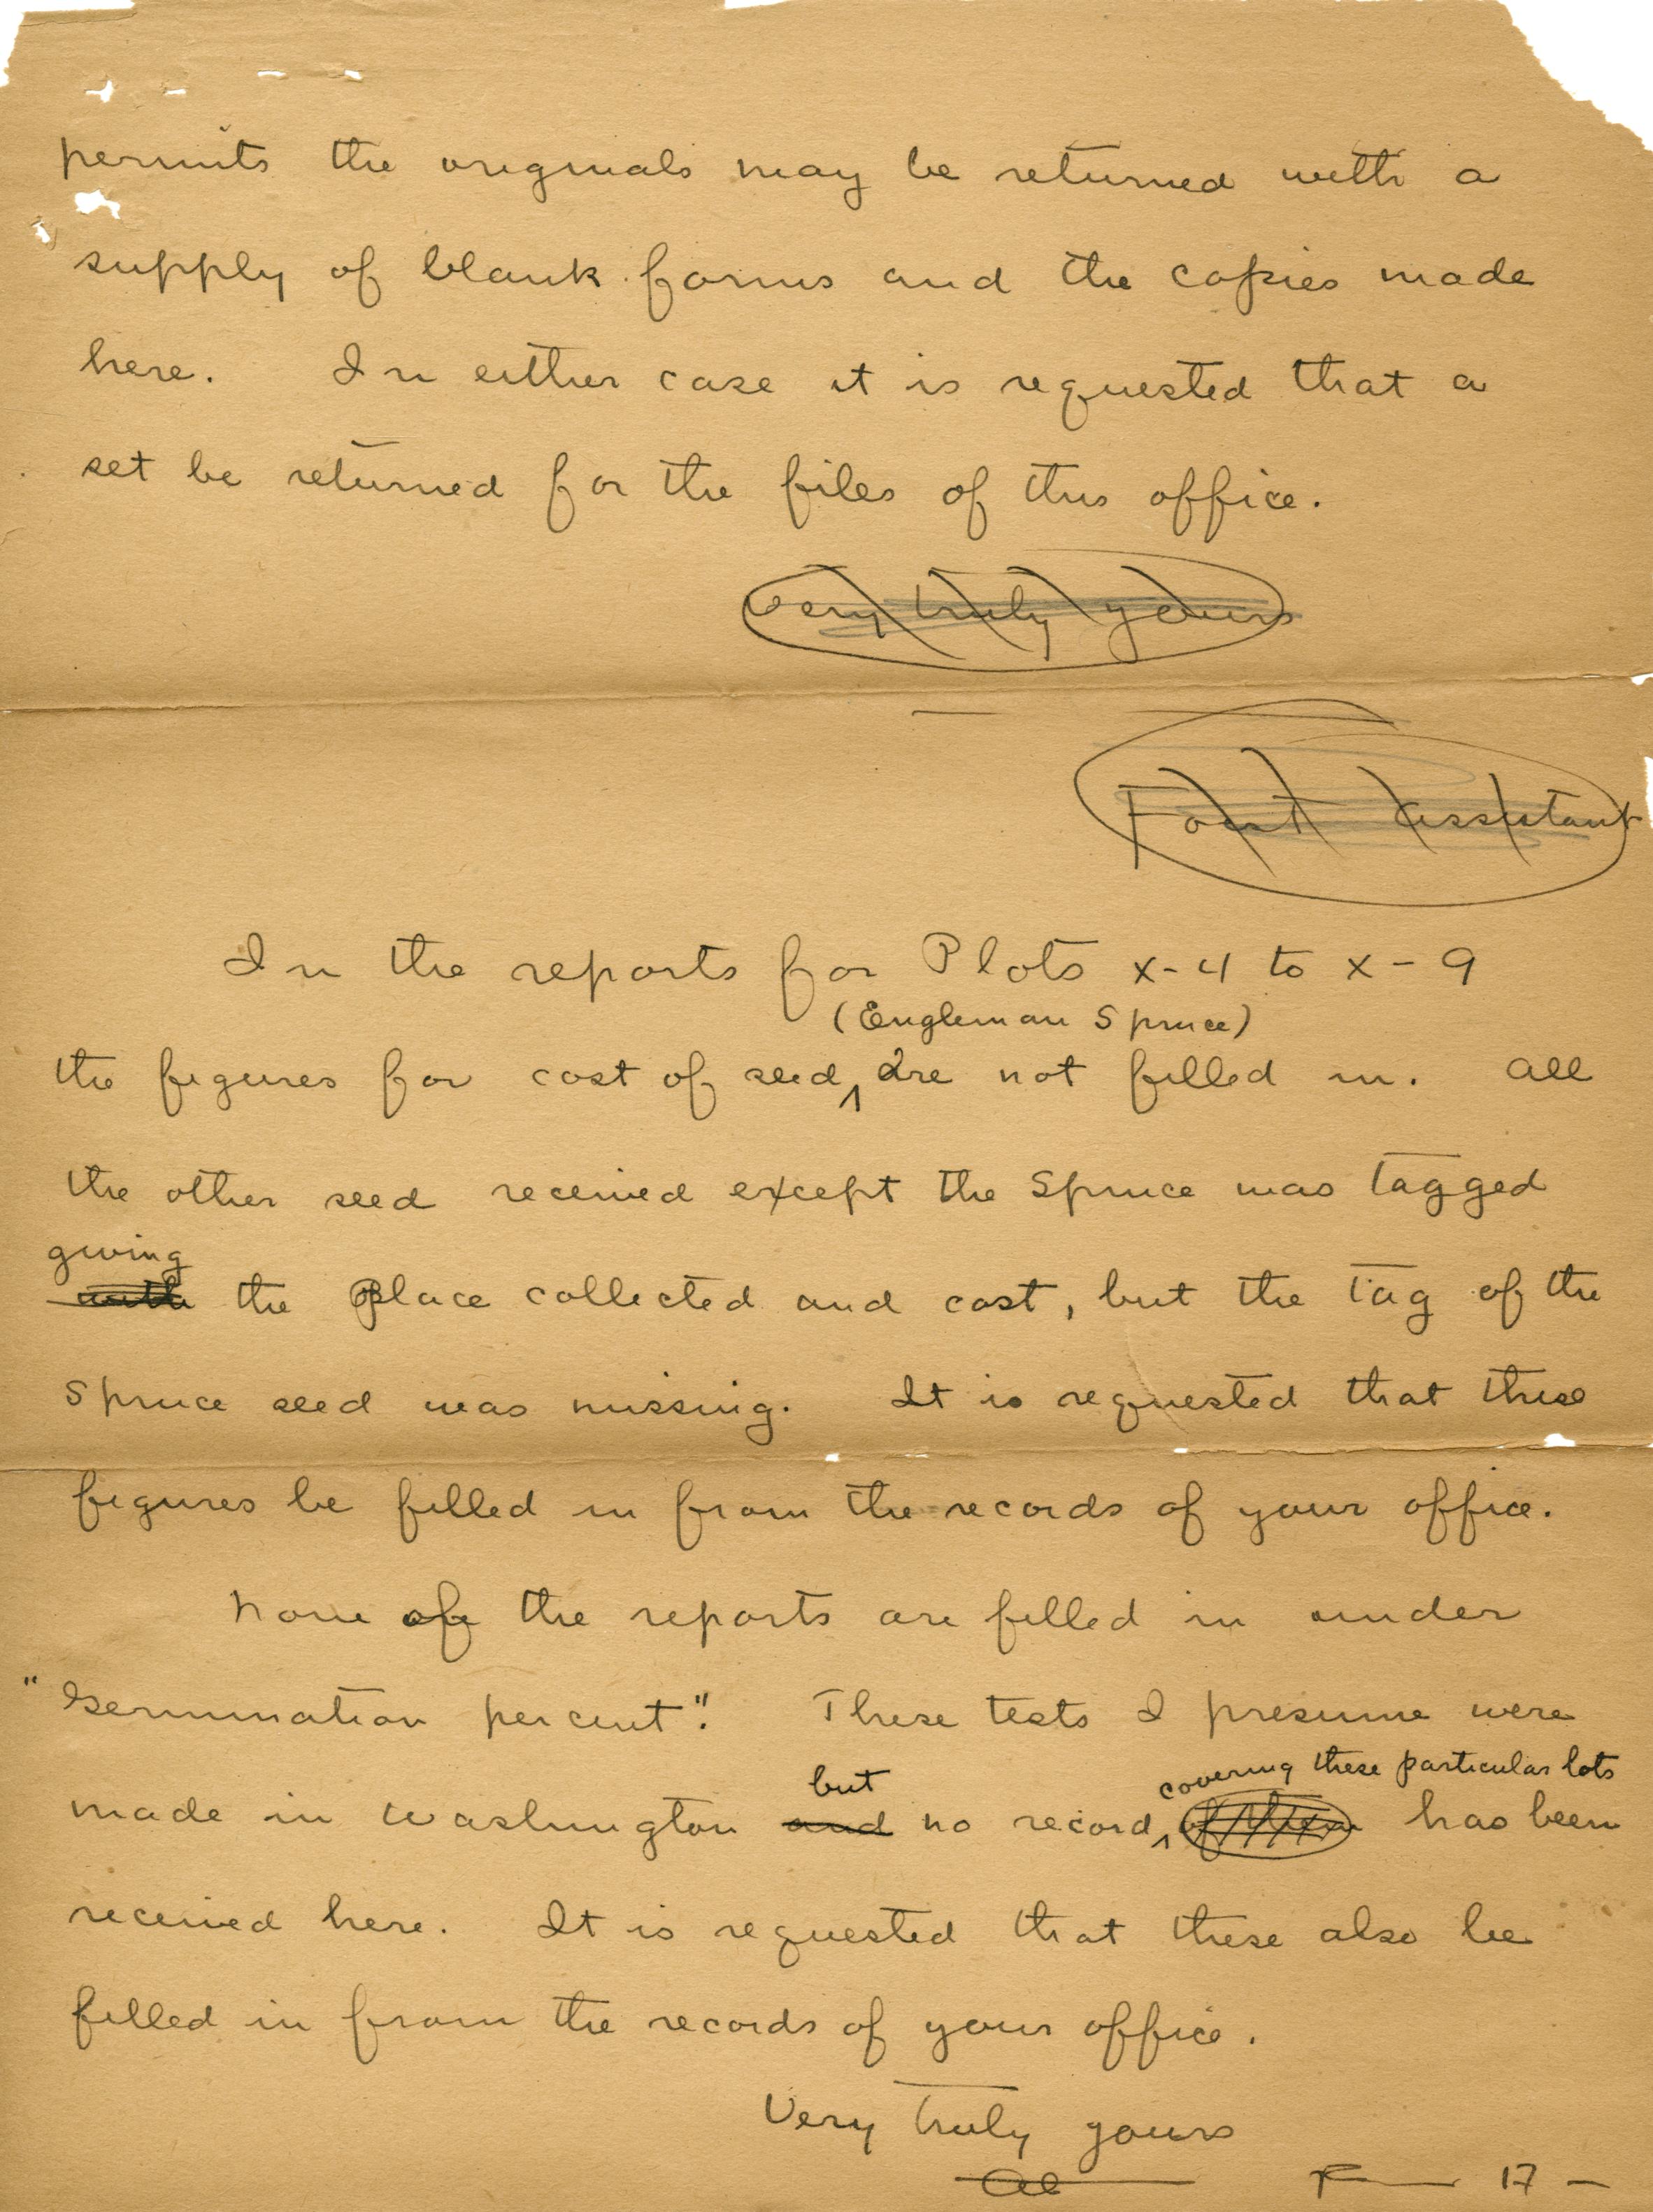 permits the originals may be returned with a
supply of blank forms and the copies made
here. In either case it is requested that a
set be returned for the files of this office.
Very truly yours
Assistant
In the reports for Plots x-4 to x-9
(Engleman Spruce)
the figures for cost of seed ^ are not filled in. All
the other seed received except the Spruce was tagged
giving
with the Place collected and cost, but the tag of the
Spruce seed was missing. It is requested that these
figures be filled in from the records of your office.
None of the reports are filled in under
"Germination per cent". These tests I presume were
but covering these particular lots
made in Washington and no record ^ of them has been
received here. It is requested that these also be
filled in from the records of your office.
Very truly yours
17 —